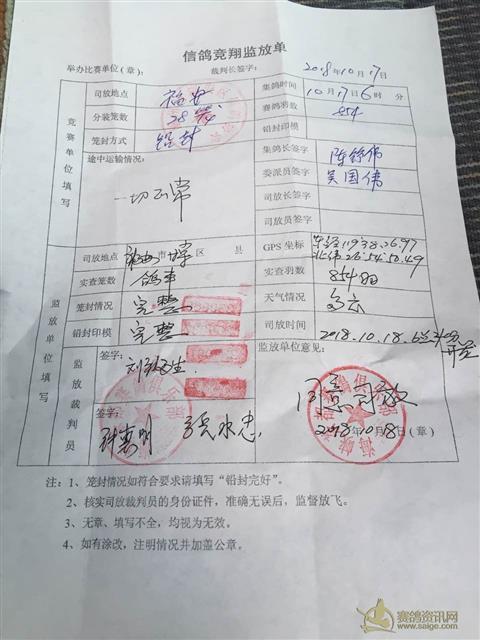 信鸽竞翔监放单
举办比赛单位（章）： 裁判长签字： 2018年10月17日
竞赛单位填写
司放地点 福安 集鸽时间 10月17日6时 分
分装笼数 28笼 赛鸽羽数 854
笼封方式 铅封 铅封印模
途中运输情况： 集鸽长签字
一切正常 委派员签字 吴国伟
司放长签字
司放员签字
监放单位填写
司放地点 市 区 县 GPS 坐标 东经119.38.26.97
北纬26.54.50.49
实查笼数 实查羽数 854羽
笼封情况 完整 天气情况 多云
铅封印模 完整 司放时间 2018.10.18.
监放裁判员 签字： 监放单位意见：
同意司放
签字： 2018年10月18日（章）
注：1、笼封情况如符合要求请填写“铅封完好”。
2、核实司放裁判员的身份证件，准确无误后，监督放飞。
3、无章、填写不全，均视为无效。
4、如有涂改，注明情况并加盖公章。
赛鸽资讯网
www.saige.com